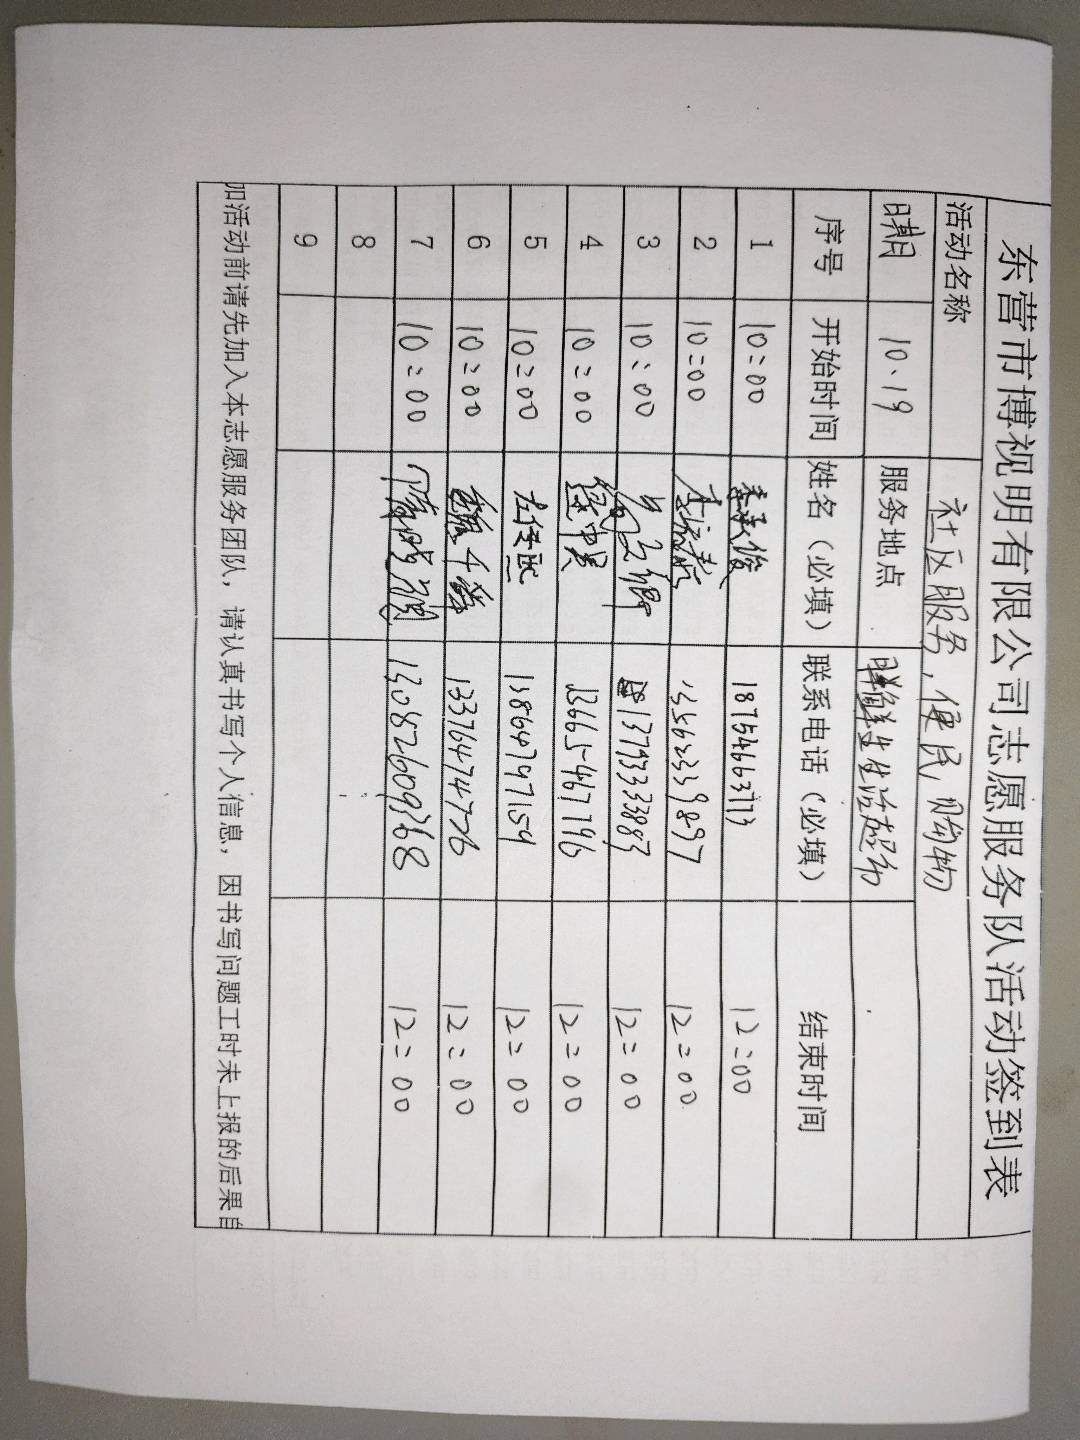 东营市博视明有限公司志愿服务队活动签到表
活动名称 社区服务，便民购物
日期 10.19 服务地点 鲜生生活超市
序号 开始时间 姓名（必填） 联系电话（必填） 结束时间
1 10:00 李承俊 18754663773 12:00
2 10:00 12:00
3 10:00 13793333883 12:00
4 10:00 13665467796 12:00
5 10:00 13864797154 12:00
6 10:00 13376474776 12:00
7 10:00 13082609368 12:00
8
9
加活动前请先加入本志愿服务团队，请认真书写个人信息，因书写问题工时未上报的后果自